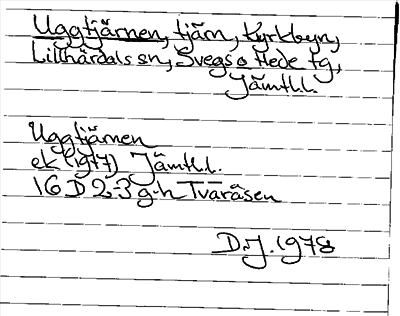 Uggtjärnen, tjärn, Kyrkbyn,
Lillhärdals sn, Svegs o Hede tg,
Jämtl.l.
Uggtjärnen
ek (1977) Jämtl.l.
16 D 2-3 g-h Tvåråsen
D.J. 1978